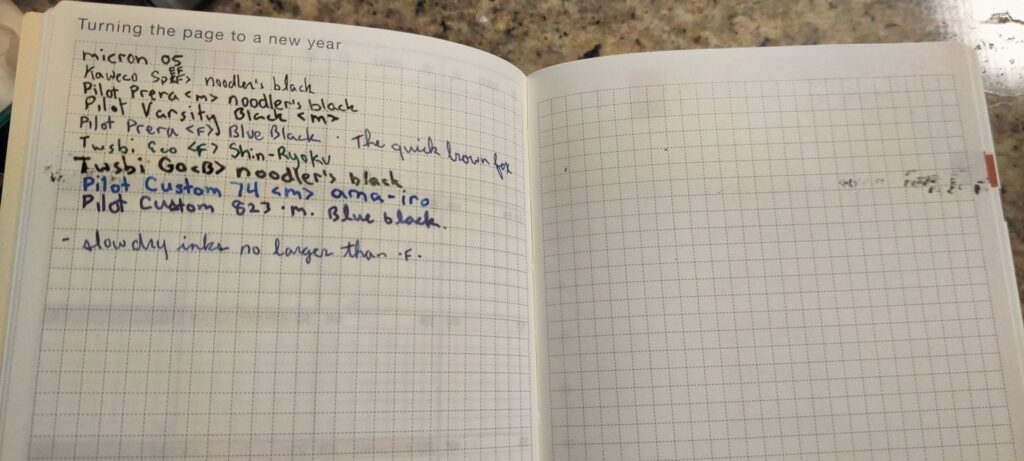 Turning the page to a new year
micron 05
Kaweco Sp <EF> noodler's black
Pilot Prera <m> noodler's black
Pilot Varsity Black <m>
Pilot Prera <F> Blue Black . The quick brown fox
Twsbi Eco <F> Shin-Ryoku
Twsbi Go <B> noodler's black
Pilot Custom 74 <m> ama-iro
Pilot Custom 823 .m. Blue black.
- slow dry inks no larger than .F.